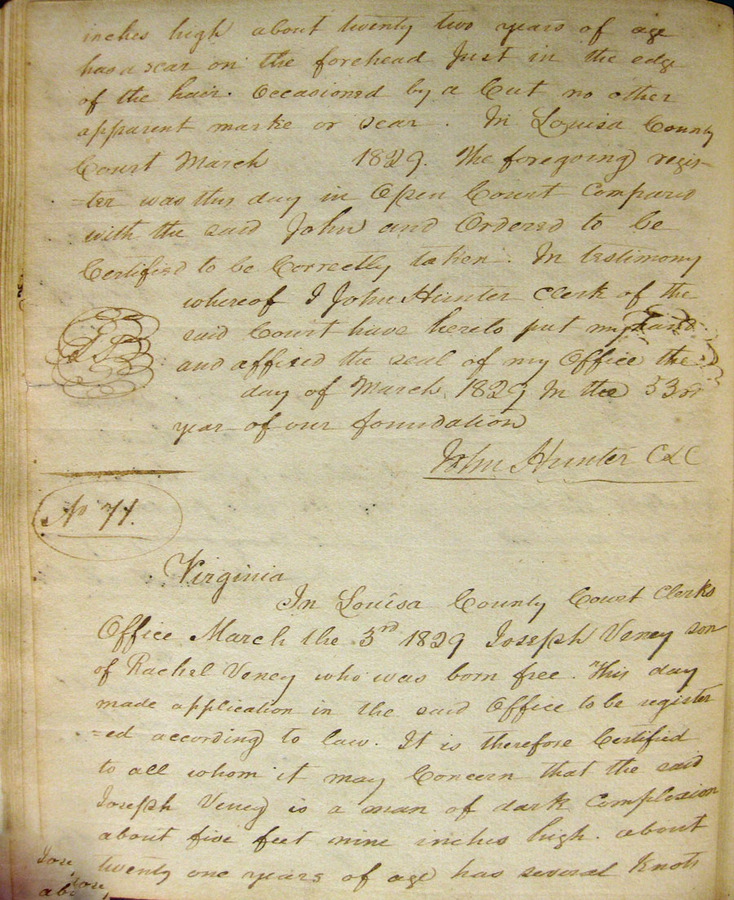 inches high about twenty two years of age
has a scar on the forehead Just in the edge
of the hair. Occasioned by a Cut no other
apparent marke or scar. In Louisa County
Court March 1829. The foregoing regis-
=ter was this day in Open Court Compared
with the said John and Ordered to be
Certified to be Correctly taken. In testimony
whereof I John Hunter Clerk of the
said Court have hereto put my hand
and affixed the seal of my Office the
day of March 1829 In the 53rd
year of our foundation
John Hunter CLC
No 71.
Virginia
In Louisa County Court Clerks
Office March the 3rd 1829 Joseph Veney son
of Rachel Veney who was born free. This day
made application in the said Office to be register
=ed according to law. It is therefore Certified
to all whom it may Concern that the said
Joseph Veney is a man of dark Complexion
about five feet nine inches high. about
twenty one years of age has several Knots